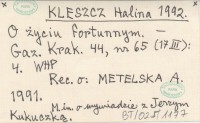 KLESZCZ Halina 1992.
O życiu fortunnym. —
Gaz. Krak. 44, nr 65 (17 III):
4. WHP
Rec. o: METELSKA A.
1991.
M.in. o wywiadzie z Jerzym
Kukuczką.
BT/02JT/1177